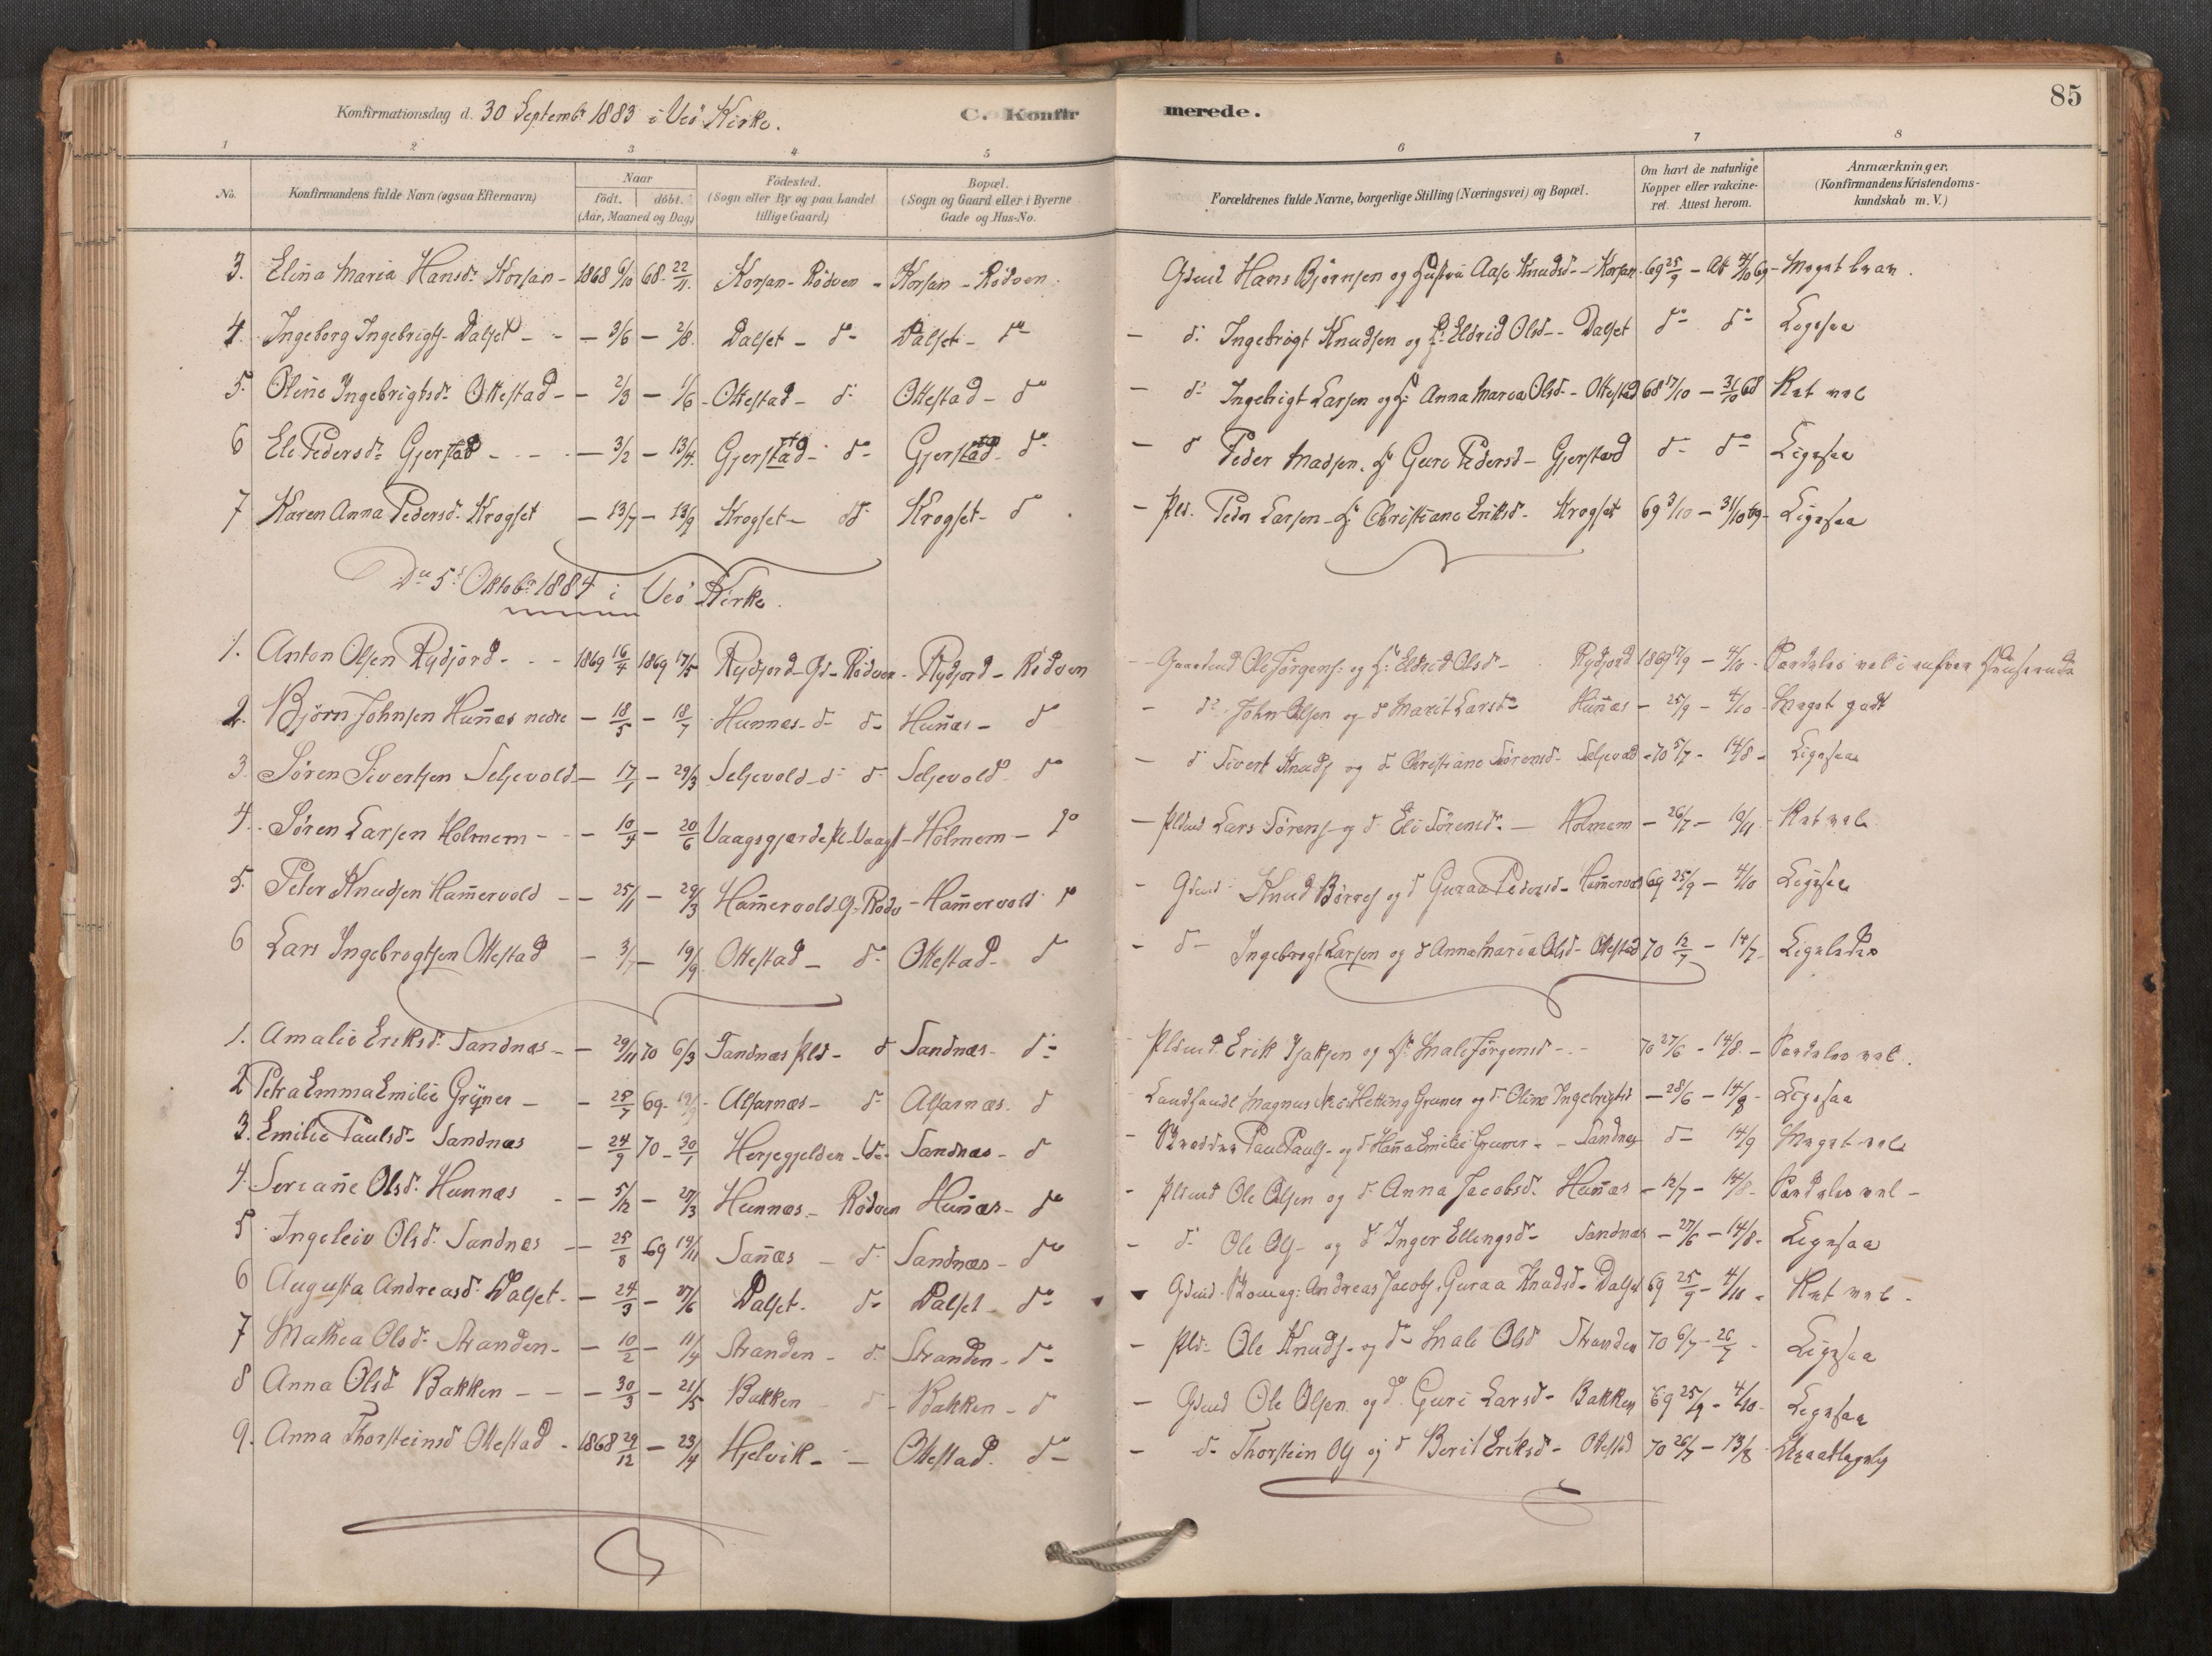 85
Konfirmationsdag d. 30 Septembr 1883 i Veö Kirke. C. Konfirmerede.
1 2 3 4 5 6 7 8
No. Konfirmandens fulde Navn (ogsaa Efternavn) Naar födt. döbt. (Aar, Maaned og Dag) Födested. (Sogn eller By og paa Landet tillige Gaard) Bopæl. (Sogn og Gaard eller i Byerne Gade og Hus-No. Forældrenes fulde Navne, borgerlige Stilling (Næringsvei) og Bopæl. Om havt de naturlige Kopper eller vakcineret. Attest herom. Anmærkninger, (Konfirmandens Kristendomskundskab m. V.)
3. Elina Maria Hansdr Korsan - 1868 6/10 68 22/11. Korsan - Rödven - Korsan - Rödven. Gdmd Hans Björnsen og Hustru Aase Knudsd - Korsan 69 25/9 - At 4/10 69 - Meget brav.
4. Ingeborg Ingebrigts. Dalset - - 3/6 - 2/8. Dalset - do Dalset - do - do Ingebrigt Knudsen og H. Eldrid Olsd - Dalset do do Ligesaa
5. Oline Ingebrigtsdr Ottestad - - 2/3 - 1/6 - Ottestad - do Ottestad - do - do Ingebrigt Larsen og H. Anna Maria Olsd - Ottestad 68 17/10 - 31/10 68 Ret vel
6 Eli Pedersdr Gjerstad - - - 3/2 - 13/4. Gjerstad - do Gjerstad do - do Peder Madsen. H. Guro Pedersd - Gjerstad do do Ligesaa
7 Karen Anna Pedersdr Krogset - 13/7 - 13/9 Krogset - do Krogset - do - Pld. Peder Larsen - H. Christiane Eriksd - Krogset 69 3/10 - 31/10 69 - Ligesaa
Dn 5te Oktobr 1884 i Veö Kirke.
1. Anton Olsen Rydjord - - 1869 16/4 1869 17/5 Rydjord - Gd - Rödven - Rydjord - Rödven - Gaardmd Ole Jörgens. og H. Eldrid Olsd - Rydjord 1869 /9 - 4/10 - Særdeles vel i enhver Henseende
2. Björn Johnsen Hunnæs nedre - 18/5 - 18/7 Hunnæs - do do Hunnæs - do - do John Olsen og do Marit Larsd Hunnæs - 25/9 - 4/10 - Meget godt
3. Sören Sivertsen Seljevold - 17/1 - 29/3 Seljevold - do do Seljevold do - do Sivert Knuds og do Christiane Sörensd - Seljevold - 70 5/7 - 14/8 - Ligesaa
4. Sören Larsen Holmem - - 10/4 - 20/6 Vaagsgjærde pl. Vaags - Holmem - do - Pldmd Lars Sörens og do Eli Sörensdr - Holmem - 26/7 - 19/11. Ret vel
5. Peter Knudsen Hammervold - - 25/1 - 29/3 Hammervold G. Rödv - Hammervold do - Gdmd Knud Börres og do Guraa Pedersd - Hammervold 69 25/9 - 4/10 Ligesaa
6 Lars Ingebrigtsen Ottestad - 3/7 - 19/9 Ottestad - do Ottestad - do - do Ingebrigt Larsen og do Anna Maria Olsd - Ottestad 70 12/7 - 14/7 - Ligeledes
1. Amalie Eriksdr Sandnæs - - 29/11 70 6/3 Sandnæs Pld - do Sandnæs - do Pldmd Erik Isaksen og H. Mali Jörgensd - 70 27/6 - 14/8 - Særdeles vel.
2 Petra Emma Emilie Grüner - - 25/7 69 - Alfarnæs - do Alfarnæs - do - Landhandl Magnus Hetting Gruner og do Oline Ingebrigtsd - 28/6 - 14/8 Ligesaa
3. Emilie Paulsdr Sandnæs - 24/9 70 - 30/1 Herjegjelden - do Sandnæs - do - Paul Pauls - og do Hanna Emilie Gruner - - Sandnæs do 14/9 Meget vel
4. Serianne Olsdr Hunnæs - - 5/12 - 27/3 Hunnæs - Rödven Hunnæs - do - Pldmd Ole Olsen og do Anna Jacobsdr Hunnæs - 12/7 - 14/8 - Særdeles vel -
5 Ingeleiv Olsdr Sandnæs - 25/8 69 14/11 Sannæs - do Sandnæs - do - do Ole Ols - og do Inger Ellingsd - Sandnæs - 27/6 - 14/8 - Ligesaa
6 Augusta Andreasdr Dalset - - 24/3 - 27/6 Dalset - do Dalset - do - Gdmd Andreas Jacobs. Guraa Knudsd - Dalset 69 25/9 - 4/10 - Ret vel -
7 Mathea Olsdr Stranden - - 10/2 - 11/4 Stranden - do Stranden - do - Pld - Ole Knuds - og do Mali Olsd Stranden 70 6/7 - 26/7 - Ligesaa
8 Anna Olsd Bakken - - - 30/3 - 21/5 Bakken - do - Bakken - do - Gdmd Ole Olsen og do Guri Larsd - Bakken 69 25/9 - 4/10 - Ligesaa
9. Anna Thorsteinsd Ottestad - 1868 29/12 - 23/4 Hjelvik - - Ottestad do - do Thorstein Ols og do Berit Eriksd - Ottestad 70 26/7 - 13/8 -